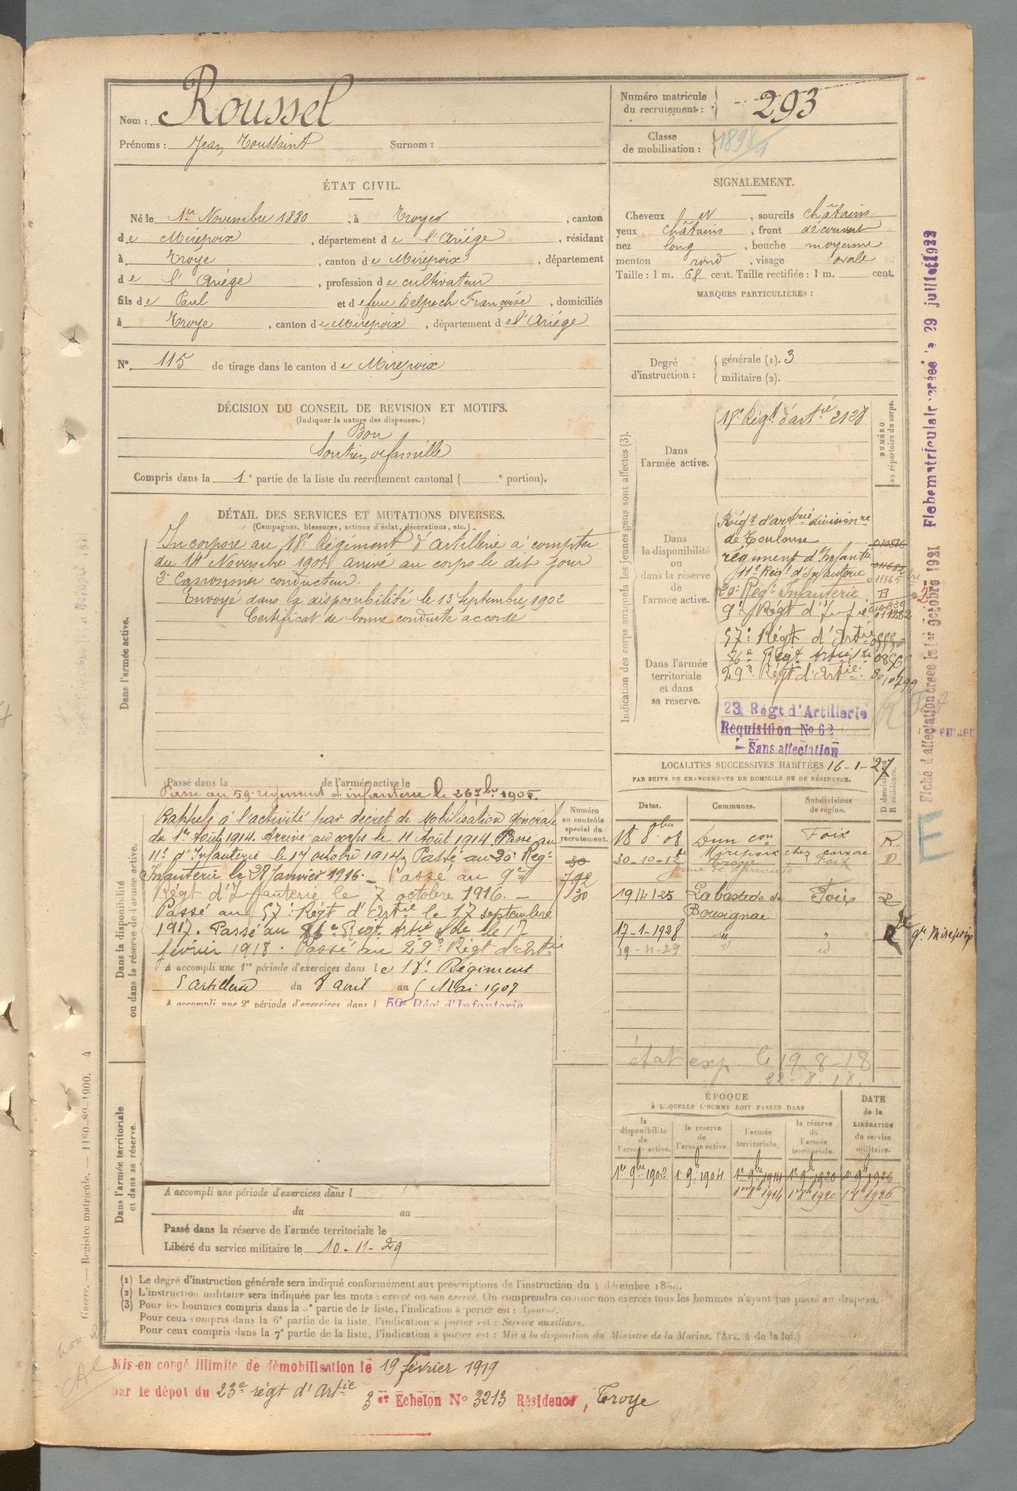 Nom : Roussel
Prénoms : Jean Toussaint Surnom :
Numéro matricule du recrutement : 293
Classe de mobilisation :
ÉTAT CIVIL.
Né le 1er Novembre 1880, à Troyes, canton
de Mirepoix, département de l'Ariége, résidant
à Troye, canton de Mirepoix, département
de l'Ariége, profession de cultivateur
fils de Paul et de feue Delpech Françoise, domiciliés
à Troye, canton de Mirepoix, département de l'Ariége
N° 115 de tirage dans le canton de Mirepoix
SIGNALEMENT.
Cheveux, sourcils châtains
yeux châtains, front découvert
nez long, bouche moyenne
menton rond, visage ovale
Taille : 1 m. 68 cent. Taille rectifiée : 1 m. cent.
MARQUES PARTICULIÈRES :
Degré d'instruction : générale (1). 3
militaire (2).
DÉCISION DU CONSEIL DE REVISION ET MOTIFS.
(Indiquer la nature des dispenses.)
Bon
Soutien de famille
Compris dans la 1e partie de la liste du recrutement cantonal ( e portion).
DÉTAIL DES SERVICES ET MUTATIONS DIVERSES.
(Campagnes, blessures, actions d'éclat, décorations, etc.)
Dans l'armée active.
Incorporé au 18e Régiment d'Artillerie à compter
du 14 Novembre 1901 arrivé au corps le dit jour
2e Canonnier conducteur
Envoyé dans la disponibilité le 13 Septembre 1902
Certificat de bonne conduite accordé
Passé dans la de l'armée active le
Passé au 59e régiment d'infanterie le 26 7bre 1905.
Dans la disponibilité ou dans la réserve de l'armée active.
Rappelé à l'activité par decret de Mobilisation Générale
du 1er Août 1914. Arrivé au corps le 11 Août 1914 Passé au
11e d'Infanterie le 17 octobre 1914, Passé au 20e Reg.
Infanterie le 28 Janvier 1916. Passé au 9e
Régt d'Infanterie le 7 octobre 1916.
Passé au 57e Régt d'Artie le 17 septembre
1917. Passé au 86e Regt Artie le 17
février 1918. Passé au 29e Régt d'Artie
A accompli une 1re période d'exercices dans le 18e Régiment
d'artillerie du 8 avril au Mai 1907
A accompli une 2e période d'exercices dans l 59e Régt d'Infanterie
Numéro au contrôle spécial du recrutement.
Indication des corps auxquels les jeunes gens sont affectés (3).
NUMÉRO au répertoire du corps.
Dans l'armée active.
18e Régt d'artie 2128
Dans la disponibilité ou dans la réserve de l'armée active.
Régt d'artie divisionre
de Toulouse
régiment d'Infantie
11e Régt d'Infanterie
20e Régt Infanterie
9e Régt d'Infie
Dans l'armée territoriale et dans sa réserve.
57e Régt d'Artie
86e Régt Artie
29e Régt d'Artie
23 Régt d'Artillerie
Réquisition No 62
Sans affectation
LOCALITÉS SUCCESSIVES HABITÉES 16-1-27
PAR SUITE DE CHANGEMENTS DE DOMICILE OU DE RÉSIDENCE.
Dates. Communes. Subdivisions de région. D domicile. R résidence.
18 8bre 08 Dun Foix R.
30-10-12 Mirepoix Foix D
19.11.25 Labastide de Bousignac Foix R
17-1-1928 " " R
19-11-29 " "
gie Mirepoix
état exp. le 19.8.18
22.8.18.
ÉPOQUE
À LAQUELLE L'HOMME DOIT PASSER DANS
DATE de la LIBÉRATION du service militaire.
la disponibilité de l'armée active. la réserve de l'armée active. l'armée territoriale. la réserve de l'armée territoriale.
1er 9bre 1902 1 9bre 1904 1er 9bre 1914 1er 9bre 1920 1er 9bre 1926
Dans l'armée territoriale et dans sa réserve.
A accompli une période d'exercices dans l
du au
Passé dans la réserve de l'armée territoriale le
Libéré du service militaire le 10-11-29
(1) Le degré d'instruction générale sera indiqué conformément aux prescriptions de l'instruction du 4 décembre 1889.
(2) L'instruction militaire sera indiquée par les mots : exercé ou non exercé. On comprendra comme non exercés tous les hommes n'ayant pas passé au drapeau.
(3) Pour les hommes compris dans la partie de la liste, l'indication à porter est : Ajourné.
Pour ceux compris dans la 6e partie de la liste, l'indication à porter est : Service auxiliaire.
Pour ceux compris dans la 7e partie de la liste, l'indication à porter est : Mis à la disposition du Ministre de la Marine. (Art. 4 de la loi.)
Mis en congé illimité de démobilisation le 19 février 1919
par le dépôt du 23e régt d'Artie 3 er Echelon No 3213 Résidence, Troye
Guerre. — Registre matricule. — 1180-89-1900. 4
Fiche d'affectation créée le 1er octobre 1921 Fiche matriculaire créée le 29 juillet 1922
E